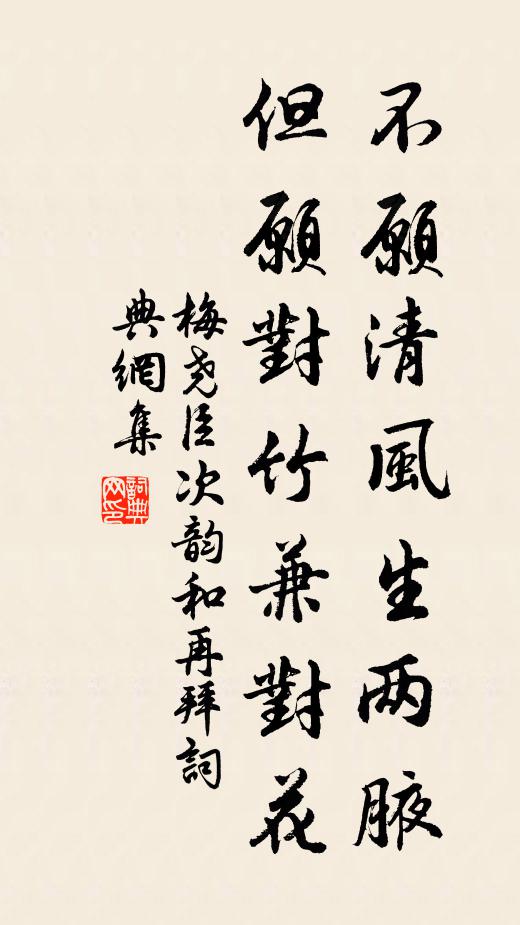 不願清風生两腋
但願對竹兼對花
梅尧臣次韵和再拜詞
典網集
詞典
网印